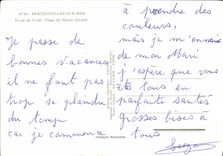 BRETIGNOLLES-SUR-MER
Ecole de Voile - Plage du Marais Girard
Je passe de
bonnes Vacances
il ne faut pas
trop se plaindre
du temp
car je commence
à prendre des
couleurs,
mais je m'ennuie
de mon Mari
j'espère que vous
êtes tous en
parfaite santés
grosses bises à
tous